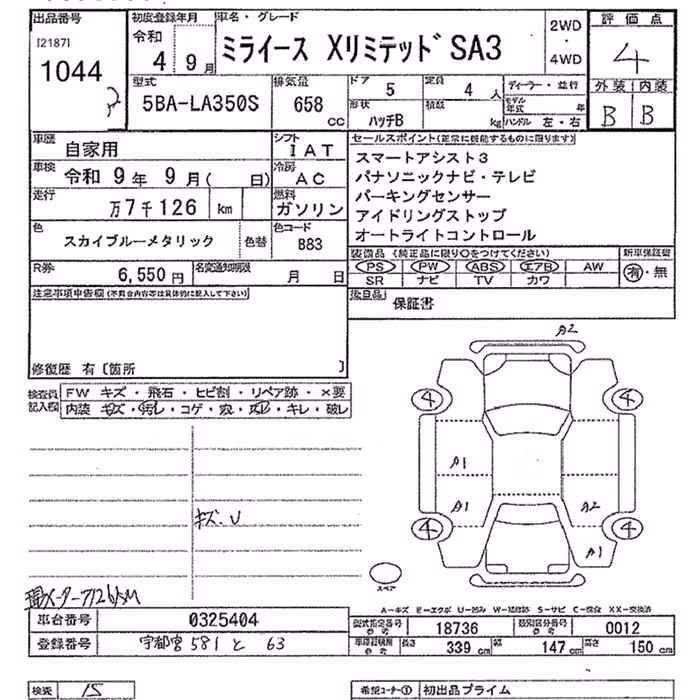 出品番号 初度登録年月 車名・グレード 2WD・4WD 評価点
[2187] 令和 ミライース Xリミテッド SA3 4
1044 4 9月
型式 排気量 ドア 5 定員 4 人 ディーラー・並行 外装 内装
5BA-LA350S 658 cc 形状 ハッチB 積載 kg モデル年式 年 ハンドル 左・右 B B
車歴 自家用 シフト IAT セールスポイント(正常に機能するものに限ります)
車検 令和 9年 9月( 日) 冷房 AC スマートアシスト3
走行 万7千126 km 燃料 ガソリン パナソニックナビ・テレビ
パーキングセンサー
アイドリングストップ
色 スカイブルーメタリック 色替 色コード B83 オートライトコントロール
装備品 (純正品に限り○をつけてください) 新車保証書
R券 6,550円 名変通知期限 月 日 PS PW ABS エアB AW 有・無
SR ナビ TV カワ
注意事項申告欄(不具合内容等は具体的に記入して下さい) 後日品 保証書
修復歴 有〔箇所 〕
検査員記入欄 FW キズ・飛石・ヒビ割・リペア跡・×要
内装 キズ・汚レ・コゲ・穴・スレ・キレ・破レ
A2
4 4
A1
A1 A2
4 4
A1
キズ.U
スペア
A-キズ E-エクボ U-凹み W-補修跡 S-サビ C-腐食 XX-交換済
車台番号 0325404 型式指定番号 参考 18736 類別区分番号 参考 0012
登録番号 宇都宮 581 と 63 車検証記載 参考 長さ 339 cm 幅 147 cm 高さ 150 cm
検査 15 希望コーナー① 初出品プライム